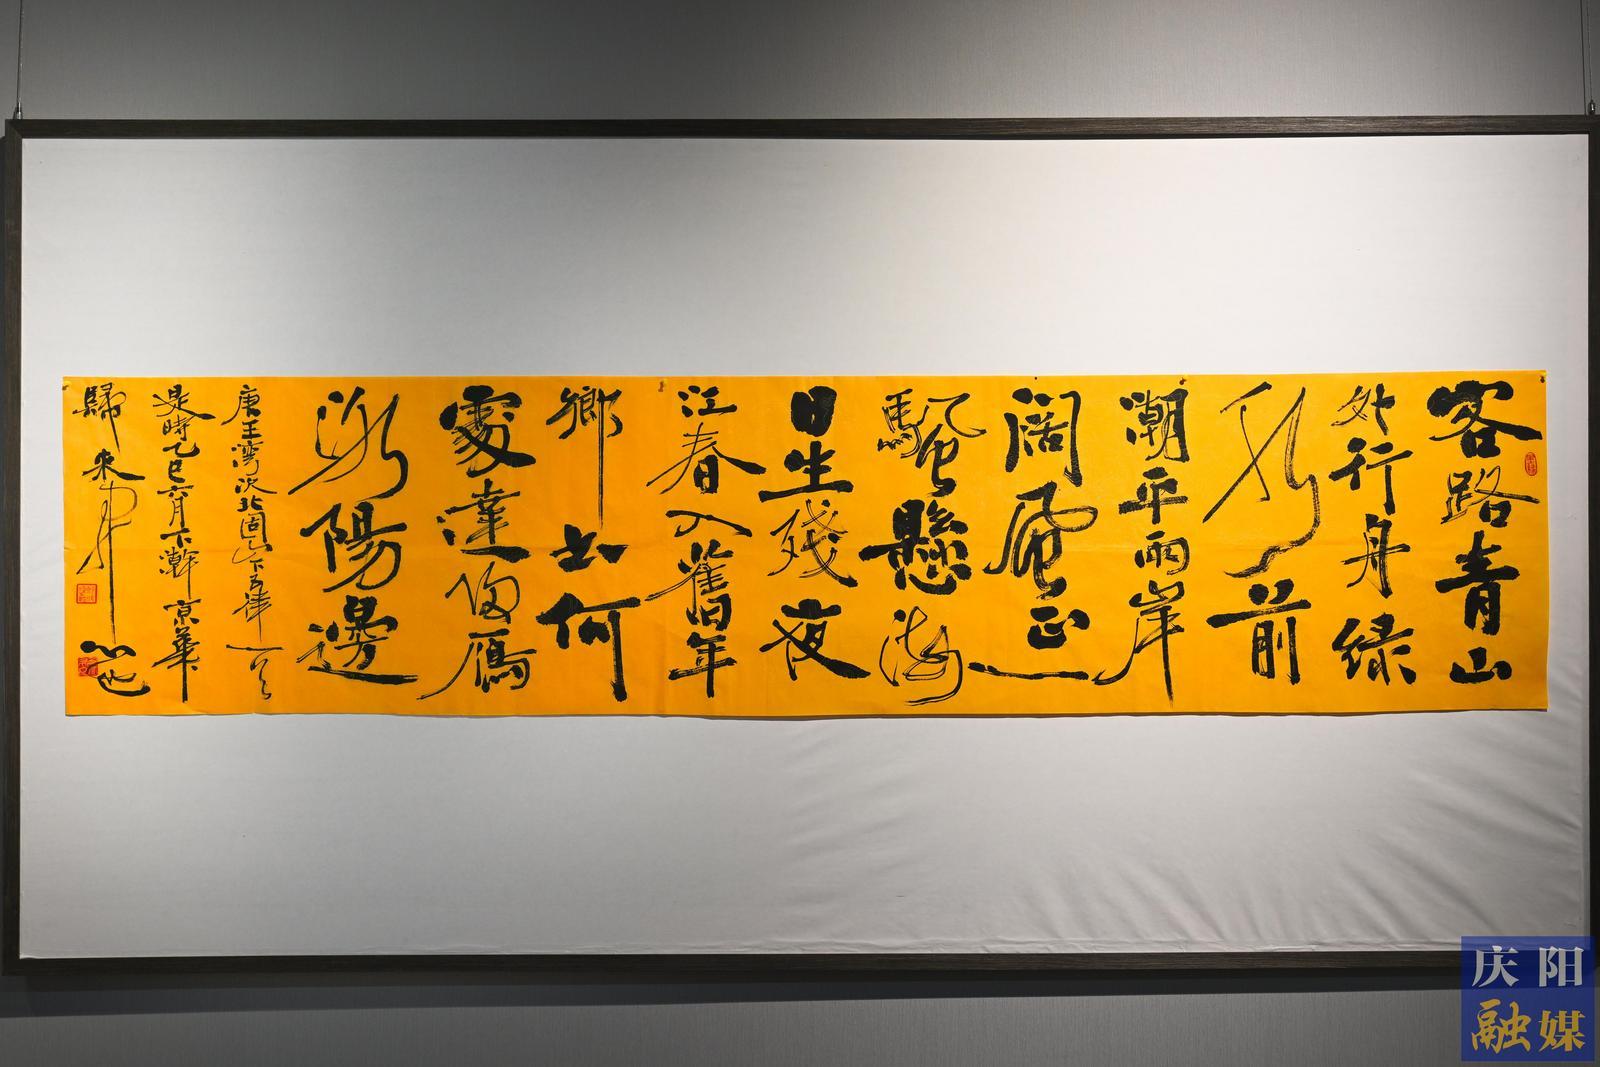 客路青山
外行舟绿
水前
潮平兩岸
阔風正一
颿懸海
日生殘夜
江春入舊年
鄉书何
處達归鴈
洛陽邊
唐王湾次北固山下五律一首
是時乙巳六月下澣京華
歸来軒
庆阳
融媒